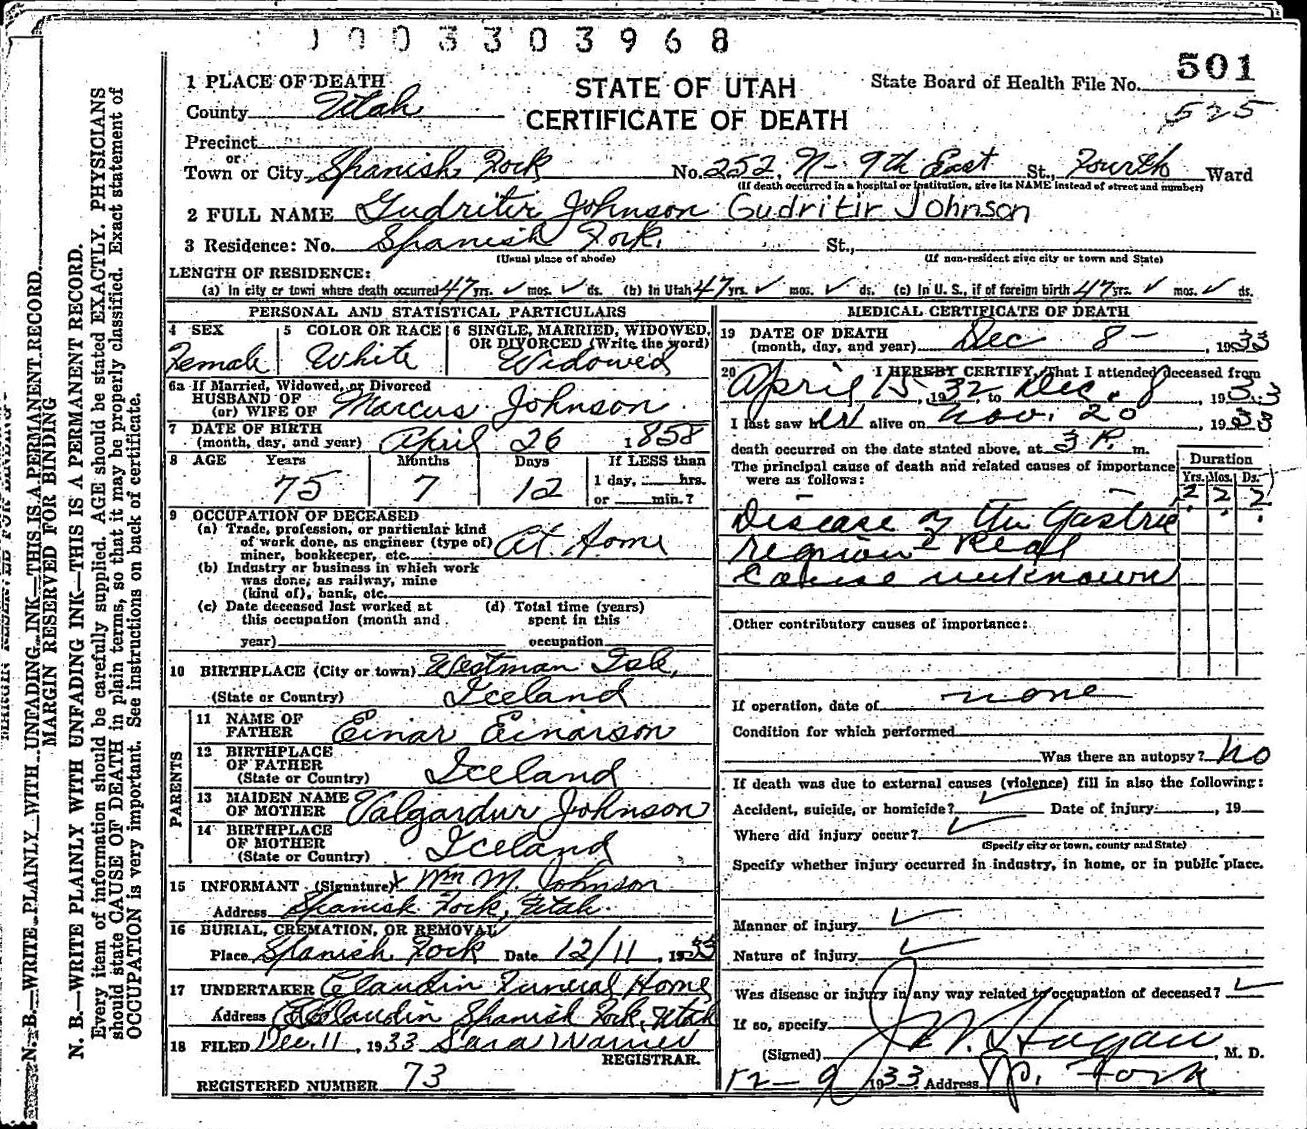 1003303968
501
525
1 PLACE OF DEATH
STATE OF UTAH
State Board of Health File No.
County Utah
CERTIFICATE OF DEATH
Precinct
or
Town or City Spanish Fork No. 252, N- 9th East St., Fourth Ward
(If death occurred in a hospital or institution, give its NAME instead of street and number)
2 FULL NAME Gudritir Johnson Gudritir Johnson
3 Residence: No. Spanish Fork. St.,
(Usual place of abode) (If non-resident give city or town and State)
LENGTH OF RESIDENCE:
(a) In city or town where death occurred 47 yrs. ✓ mos. ✓ ds. (b) In Utah 47 yrs. ✓ mos. ✓ ds. (c) In U. S., if of foreign birth 47 yrs. ✓ mos. ✓ ds.
PERSONAL AND STATISTICAL PARTICULARS
4 SEX 5 COLOR OR RACE 6 SINGLE, MARRIED, WIDOWED, OR DIVORCED (Write the word)
Female White Widowed
6a If Married, Widowed, or Divorced
HUSBAND OF
(or) WIFE OF Marcus Johnson
7 DATE OF BIRTH
(month, day, and year) April 26 1858
8 AGE Years Months Days If LESS than
1 day, hrs.
75 7 12
or min.?
9 OCCUPATION OF DECEASED
(a) Trade, profession, or particular kind
of work done, as engineer (type of)
miner, bookkeeper, etc. At Home
(b) Industry or business in which work
was done, as railway, mine
(kind of), bank, etc.
(c) Date deceased last worked at (d) Total time (years)
this occupation (month and spent in this
year) occupation
10 BIRTHPLACE (City or town) Westman Isle,
(State or Country) Iceland
PARENTS
11 NAME OF
FATHER Einar Einarson
12 BIRTHPLACE
OF FATHER
(State or Country) Iceland
13 MAIDEN NAME
OF MOTHER Valgardur Johnson
14 BIRTHPLACE
OF MOTHER
(State or Country) Iceland
15 INFORMANT (Signature) x Wm M. Johnson
Address Spanish Fork, Utah.
16 BURIAL, CREMATION, OR REMOVAL
Place Spanish Fork Date 12/11, 1933
17 UNDERTAKER Claudin Funeral Home
Address Claudin Spanish Fork, Utah
18 FILED Dec. 11, 1933 Sara Warner
REGISTRAR.
REGISTERED NUMBER 73
MEDICAL CERTIFICATE OF DEATH
19 DATE OF DEATH
(month, day, and year) Dec 8 - , 1933
20 I HEREBY CERTIFY, That I attended deceased from
April 15, 1932 to Dec. 8, 1933
I last saw her alive on Nov. 20, 1933
death occurred on the date stated above, at 3 P. m.
The principal cause of death and related causes of importance
were as follows:
Duration
Yrs. Mos. Ds.
2 2 2
Disease of the Gastric
region Real
cause unknown
Other contributory causes of importance:
If operation, date of none
Condition for which performed
Was there an autopsy? No
If death was due to external causes (violence) fill in also the following:
Accident, suicide, or homicide? ✓ Date of injury , 19
Where did injury occur? ✓
(Specify city or town, county and State)
Specify whether injury occurred in industry, in home, or in public place.
Manner of injury ✓
Nature of injury ✓
Was disease or injury in any way related to occupation of deceased? ✓
If so, specify
(Signed) J W. Hagan, M. D.
12-9 1933 Address Sp. Fork
N. B.—WRITE PLAINLY WITH UNFADING INK—THIS IS A PERMANENT RECORD
MARGIN RESERVED FOR BINDING
N. B.—WRITE PLAINLY WITH UNFADING INK—THIS IS A PERMANENT RECORD.
Every item of information should be carefully supplied. AGE should be stated EXACTLY. PHYSICIANS
should state CAUSE OF DEATH in plain terms, so that it may be properly classified. Exact statement of
OCCUPATION is very important. See instructions on back of certificate.